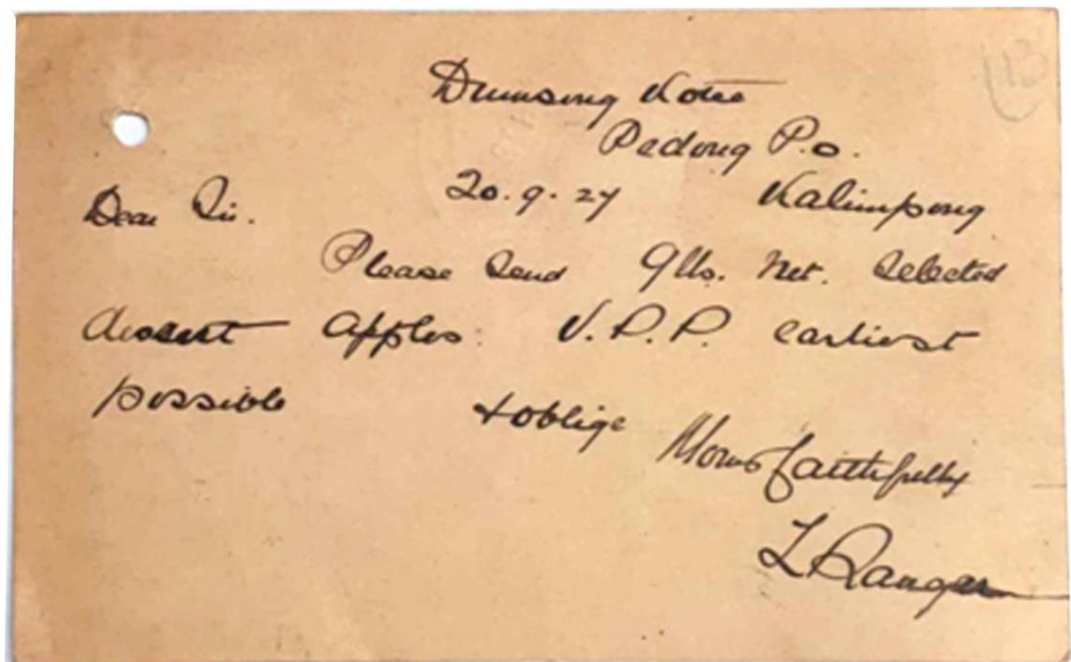 Dumsong Kotee
Pedong P.o.
20.9.27 Kalimpong
Dear Sir.
Please send 9lbs. Net. Selected
dessert apples. V.P.P. earliest
possible & oblige
Yours faithfully
L Ranger